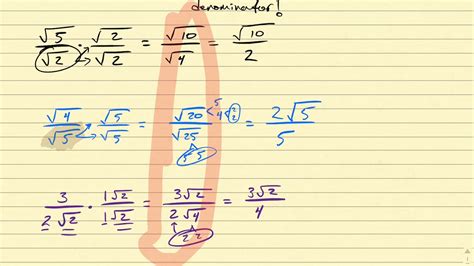 denominator!
√5/√2 · √2/√2 = √10/√4 = √10/2
√4/√5 · √5/√5 = √20/√25 = 2√5/5
5 4 2 2
5 5
3/2√2 · 1√2/1√2 = 3√2/2√4 = 3√2/4
2 2